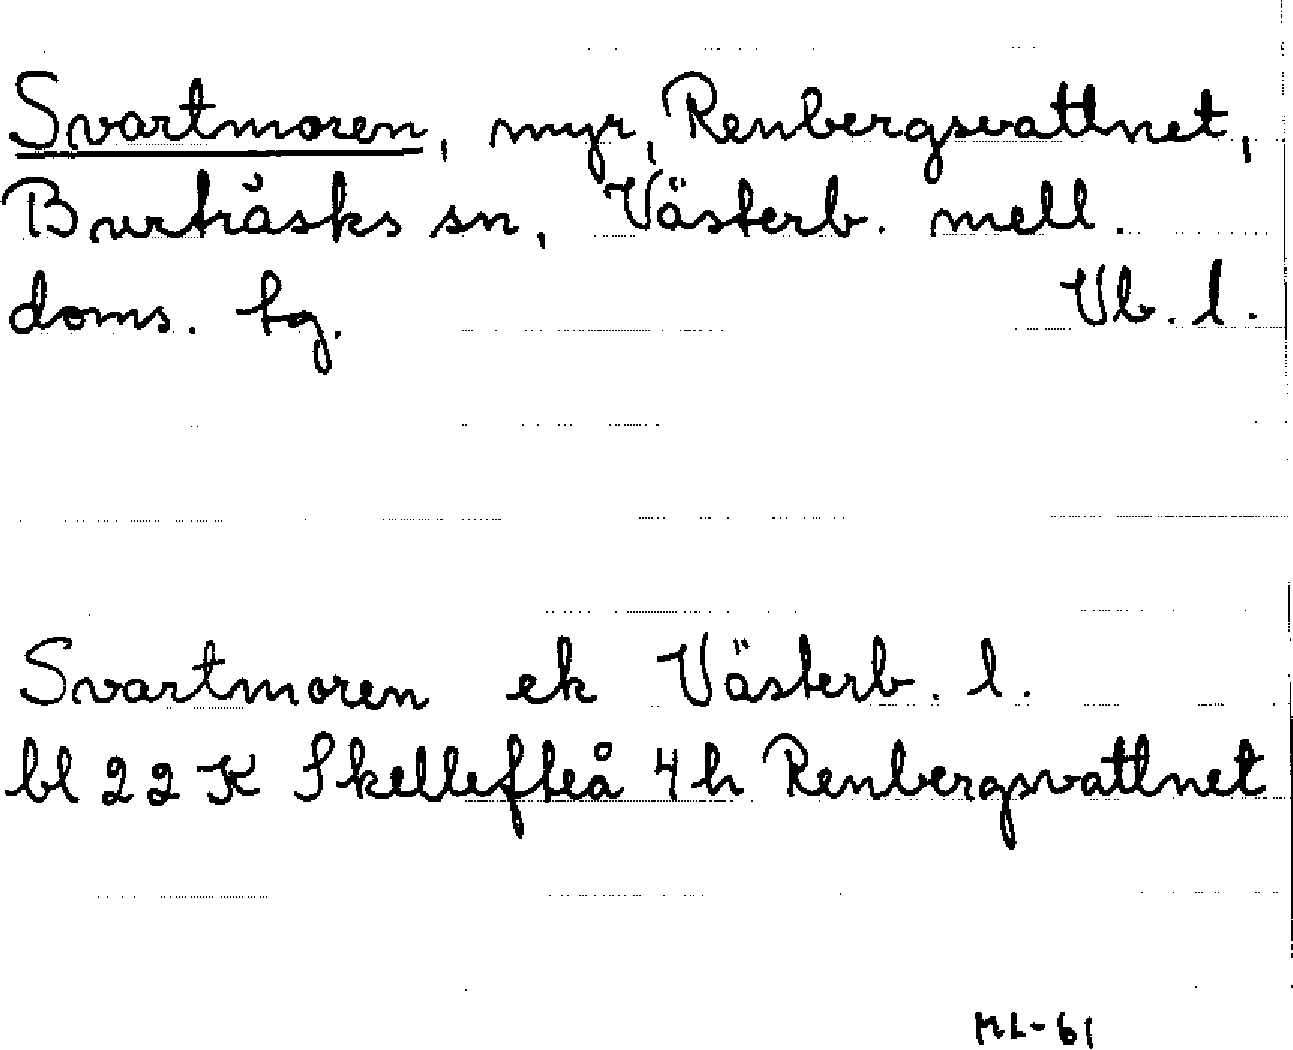 Svartmoren, myr, Renbergsvattnet,
Burträsks sn, Västerb. mell.
doms. tg. Vb. l.
Svartmoren ek Västerb. l.
bl 22 K Skellefteå 4h Renbergsvattnet
ML-61